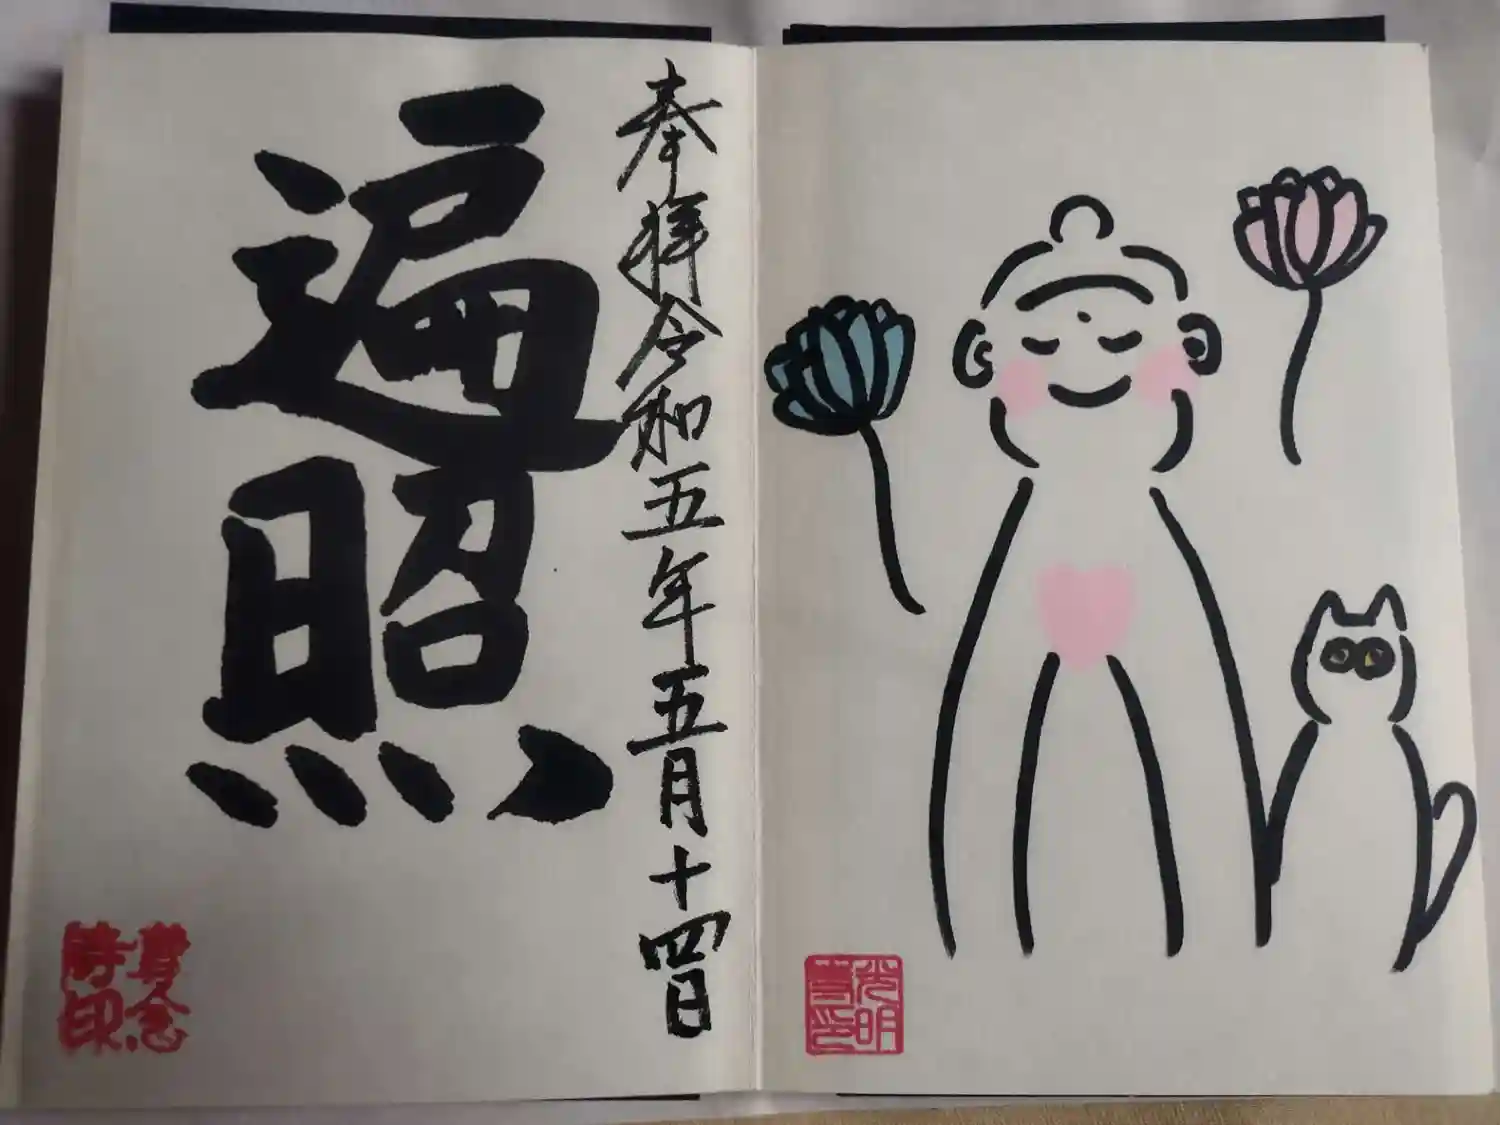 奉拝令和五年五月十四日
遍照